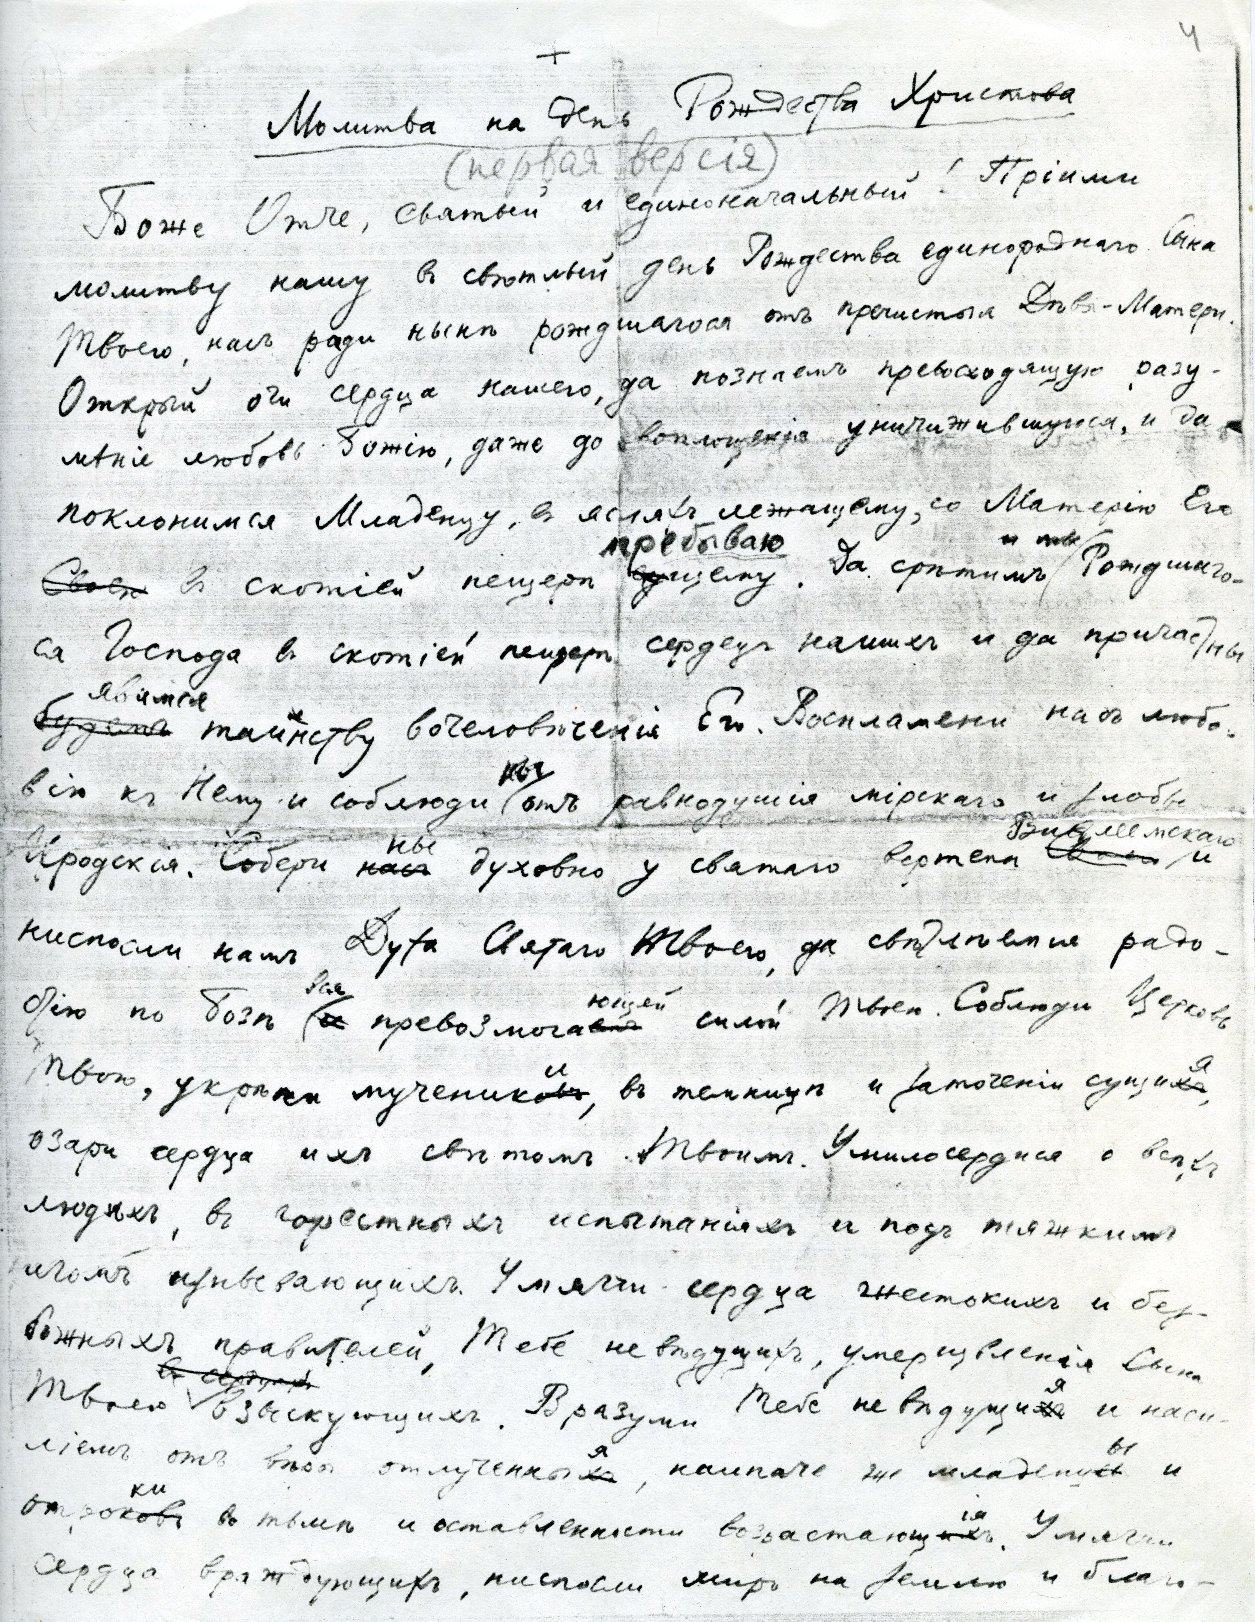 4
+
Молитва на день Рождества Христова
(первая версія)
Боже Отче, святый и единоначальный! Пріими
молитву нашу въ свѣтлый день Рождества единороднаго Сына
Твоего, насъ ради нынѣ рождшагося отъ пречистыя Дѣвы-Матери.
Открый очи сердца нашего, да познаемъ превосходящую разу-
мѣніе любовь Божію, даже до воплощенія уничижившуюся, и да
поклонимся Младенцу, въ ясляхъ лежащему, со Матерію Его
пребываю и мы
Своею въ скотіей пещерѣ сущему. Да срѣтимъ Рождшаго-
ся Господа въ скотіей пещерѣ сердецъ нашихъ и да причастны
явимся
будемъ таинству вочеловѣченія Его. Воспламени насъ любо-
ны
вію къ Нему и соблюди отъ равнодушія мірскаго и злобы
ны Виѳлеемскаго
Иродскія. Собери насъ духовно у святаго вертепа и
ниспосли намъ Духа Святаго Твоего, да свѣтлѣемся радо-
вся ющей
стію по Бозѣ и превозмога силой Твоею. Соблюди Церковь
и я
Твою, укрѣпи мучениковъ, въ темницѣ и заточеніи сущихъ,
озари сердца ихъ свѣтомъ Твоимъ. Умилосердися о всѣхъ
людяхъ, въ горестныхъ испытаніяхъ и подъ тяжкимъ
игомъ изнывающихъ. Умягчи сердца жестокихъ и без-
божныхъ правителей, Тебе невѣдущихъ, умерщвленія Сына
въ сердцахъ я
Твоего взыскующихъ. Вразуми Тебе невѣдущихъ и наси-
я ы
ліемъ отъ вѣры отлученныхъ, наипаче же младенцевъ и
ки ія
отроковъ во тьмѣ и оставленности возрастающихъ. Умягчи
сердца враждующихъ, ниспосли миръ на землю и благо-